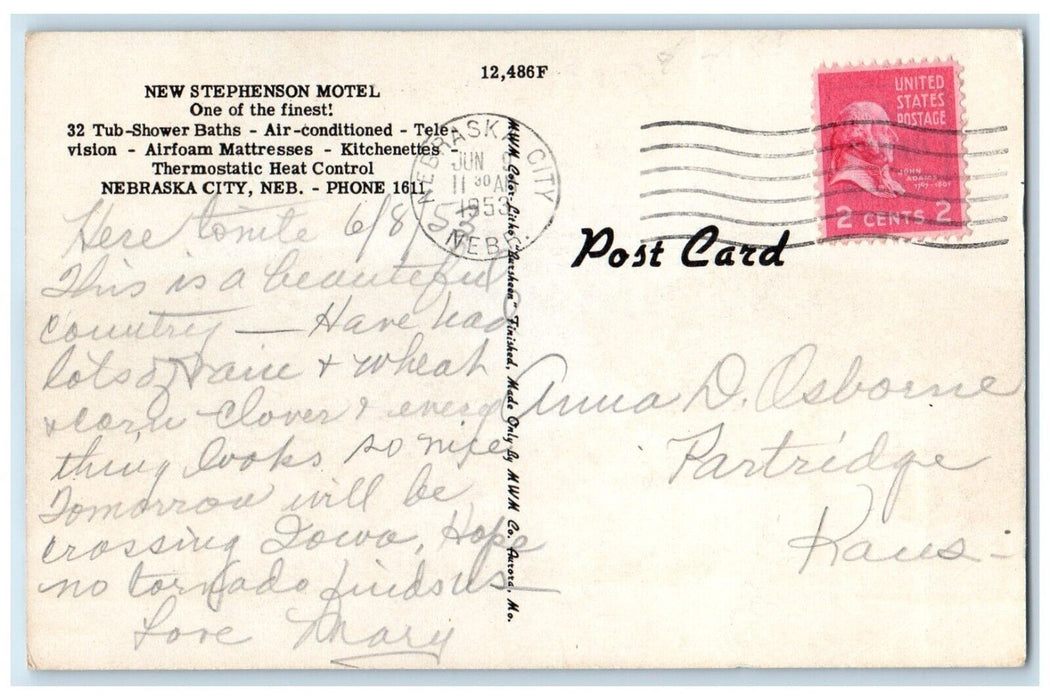 12,486F
NEW STEPHENSON MOTEL
One of the finest!
32 Tub-Shower Baths - Air-conditioned - Tele-
vision - Airfoam Mattresses - Kitchenettes -
Thermostatic Heat Control
NEBRASKA CITY, NEB. - PHONE 1611
NEBRASKA CITY
JUN 9
11 30 AM
1953
NEBR
UNITED
STATES
POSTAGE
JOHN
ADAMS
1797-1801
2 CENTS 2
Post Card
MWM Color-Litho, "Lursheen" Finished, Made Only By MWM Co. Aurora, Mo.
Here tonite 6/8/53
This is a beautiful
country — Have had
lots of rain & wheat
& corn - Clover & every
thing looks so nice
Tomorrow will be
crossing Iowa, Hope
no tornado finds us —
Love Mary
Anna D. Osborne
Partridge
Kans -